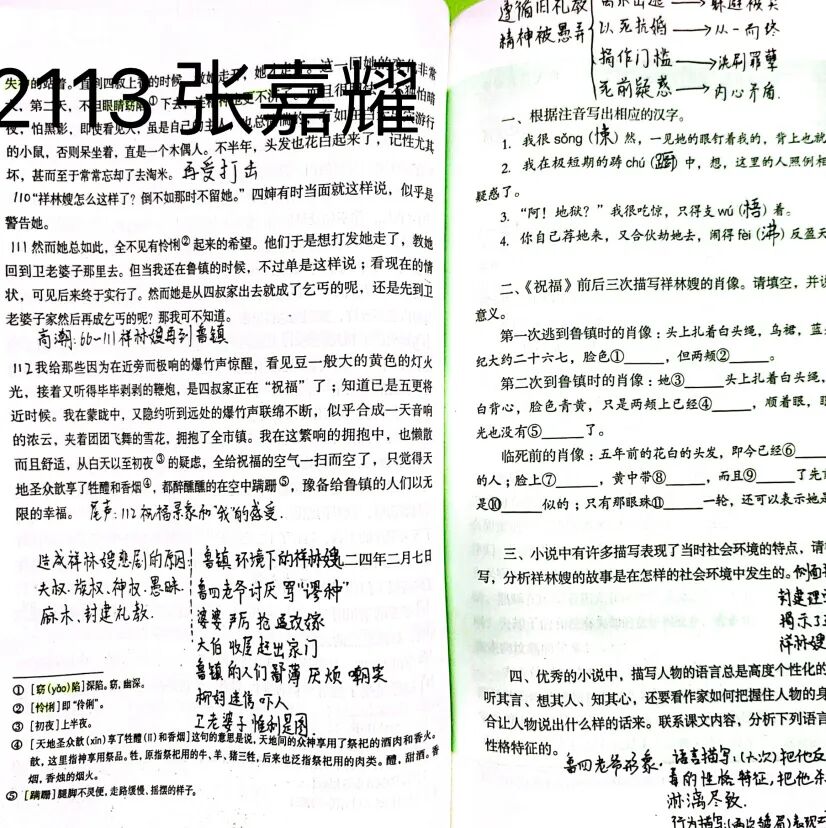 2113 张嘉耀
失神的站着。直到四叔上香的时候
大，第二天，不但眼睛窈陷①下去，连精神也更不济了。
夜，怕黑影，即使看见人，虽是自己的主人
的小鼠，否则呆坐着，直是一个木偶人。不半年，头发也花白起来了，记性尤其
坏，甚而至于常常忘却了去淘米。再受打击
110“祥林嫂怎么这样了？倒不如那时不留她。”四婶有时当面就这样说，似乎是
警告她。
111 然而她总如此，全不见有怜悧②起来的希望。他们于是想打发她走了，教她
回到卫老婆子那里去。但当我还在鲁镇的时候，不过单是这样说；看现在的情
状，可见后来终于实行了。然而她是从四叔家出去就成了乞丐的呢，还是先到卫
老婆子家然后再成乞丐的呢？那我可不知道。
高潮：66—111祥林嫂再到鲁镇
112 我给那些因为在近旁而极响的爆竹声惊醒，看见豆一般大的黄色的灯火
光，接着又听得毕毕剥剥的鞭炮，是四叔家正在“祝福”了；知道已是五更将
近时候。我在蒙眬中，又隐约听到远处的爆竹声联绵不断，似乎合成一天音响
的浓云，夹着团团飞舞的雪花，拥抱了全市镇。我在这繁响的拥抱中，也懒散
而且舒适，从白天以至初夜③的疑虑，全给祝福的空气一扫而空了，只觉得天
地圣众歆享了牲醴和香烟④，都醉醺醺的在空中蹒跚⑤，豫备给鲁镇的人们以无
限的幸福。 尾声：112 祝福景象和“我”的感受.
二四年二月七日
造成祥林嫂悲剧的原因：
夫权、族权、神权、愚昧
麻木、封建礼教.
鲁镇环境下的祥林嫂
鲁四老爷讨厌 骂“谬种”
婆婆 严厉 抢逼改嫁
大伯 收屋赶出家门
鲁镇的人们 鄙薄 厌烦 嘲笑
柳妈迷信吓人
卫老婆子 惟利是图.
①［窈(yǎo)陷］深陷。窈，幽深。
②［怜悧］即“伶俐”。
③［初夜］上半夜。
④［天地圣众歆(xīn)享了牲醴(lǐ)和香烟］这句的意思是说，天地间的众神享用了祭祀的酒肉和香火。
歆，这里指神享用祭品。牲，原指祭祀用的牛、羊、猪三牲，后来也泛指祭祀用的肉类。醴，甜酒。香
烟，香烛的烟火。
⑤［蹒跚］腿脚不灵便，走路缓慢、摇摆的样子。
遵循旧礼教
精神被愚弄
以死抗婚→从一而终
捐作门槛→洗刷罪孽
死前疑惑→内心矛盾.
一、根据注音写出相应的汉字。
1. 我很sǒng（悚）然，一见她的眼钉着我的，背上也就
2. 我在极短期的踌chú（躇）中，想，这里的人照例相
疑惑了。
3. “阿！地狱？”我很吃惊，只得支wú（悟）着。
4. 你自己荐她来，又合伙劫她去，闹得fèi（沸）反盈天
二、《祝福》前后三次描写祥林嫂的肖像。请填空，并说
意义。
第一次逃到鲁镇时的肖像：头上扎着白头绳，乌裙，蓝
纪大约二十六七，脸色①______，但两颊②______。
第二次到鲁镇时的肖像：她③______头上扎着白头绳，
白背心，脸色青黄，只是两颊上已经④______，顺着眼，眼
光也没有⑤______了。
临死前的肖像：五年前的花白的头发，即今已经⑥
的人；脸上⑦______，黄中带⑧______，而且⑨______了先
是⑩______似的；只有那眼珠⑪______一轮，还可以表示她是
三、小说中有许多描写表现了当时社会环境的特点，请
写，分析祥林嫂的故事是在怎样的社会环境中发生的。
封建理
揭示了
祥林嫂
四、优秀的小说中，描写人物的语言总是高度个性化的
听其言、想其人、知其心，还要看作家如何把握住人物的身
合让人物说出什么样的话来。联系课文内容，分析下列语言
性格特征的。
鲁四老爷形象.
语言描写：(六次) 把他
毒的性格特征，把他
淋漓尽致.